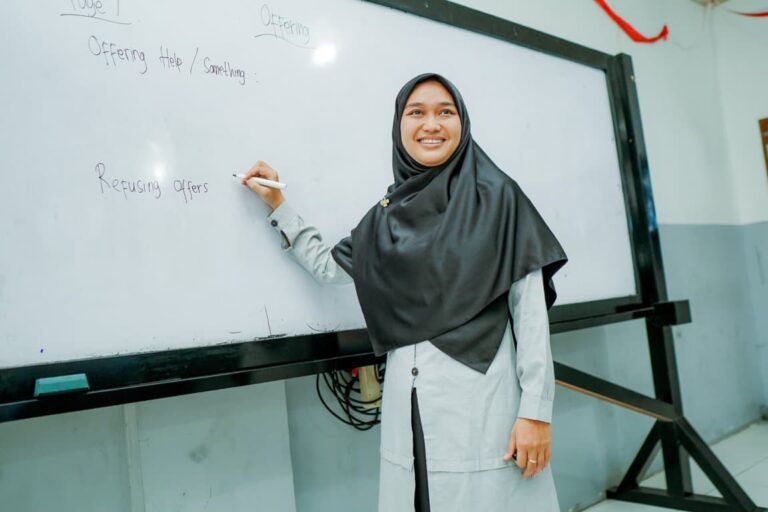 Page 1
Offering
Offering Help / Something :
Refusing Offers